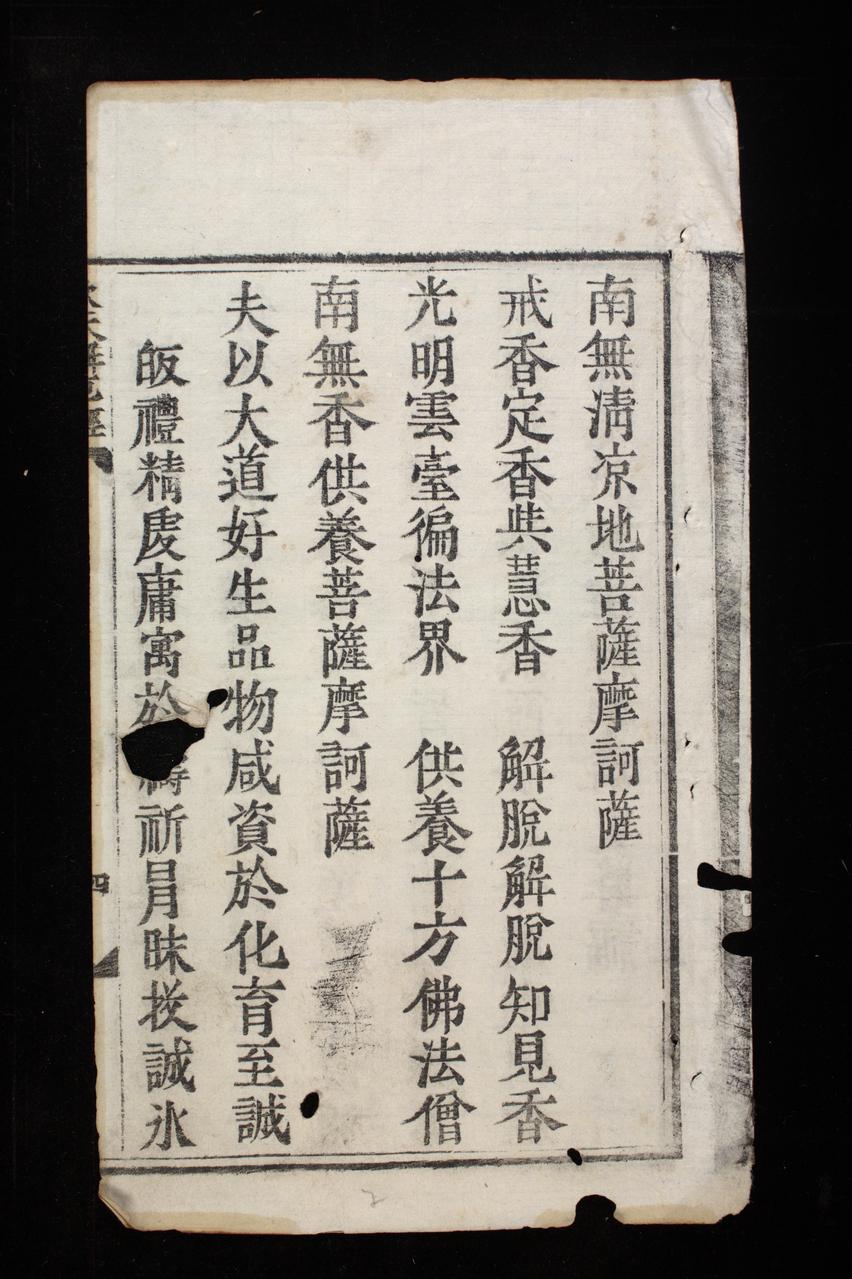 南無清凉地菩薩摩訶薩
戒香定香與慧香 解脫解脫知見香
光明雲臺徧法界 供養十方佛法僧
南無香供養菩薩摩訶薩
夫以大道好生品物咸資於化育至誠
皈禮精虔庸寓於禱祈冐昧挨誠氷
四